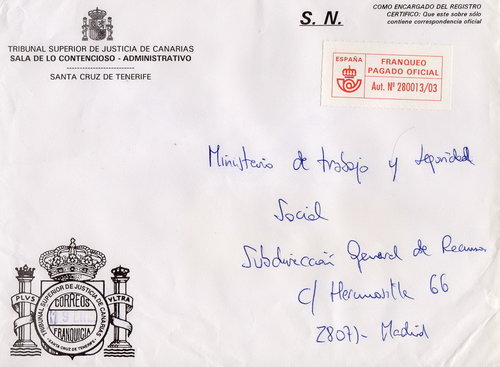 TRIBUNAL SUPERIOR DE JUSTICIA DE CANARIAS
SALA DE LO CONTENCIOSO - ADMINISTRATIVO
SANTA CRUZ DE TENERIFE
S. N.
COMO ENCARGADO DEL REGISTRO
CERTIFICO: Que este sobre sólo
contiene correspondencia oficial
ESPAÑA
FRANQUEO
PAGADO OFICIAL
Aut. Nº 280013/03
Ministerio de trabajo y seguridad
Social
Subdirección General de Recursos
c/ Hermosilla 66
28071- Madrid
PLVS
VLTRA
TRIBUNAL SUPERIOR DE JUSTICIA DE CANARIAS
CORREOS
FRANQUICIA
SANTA CRUZ DE TENERIFE